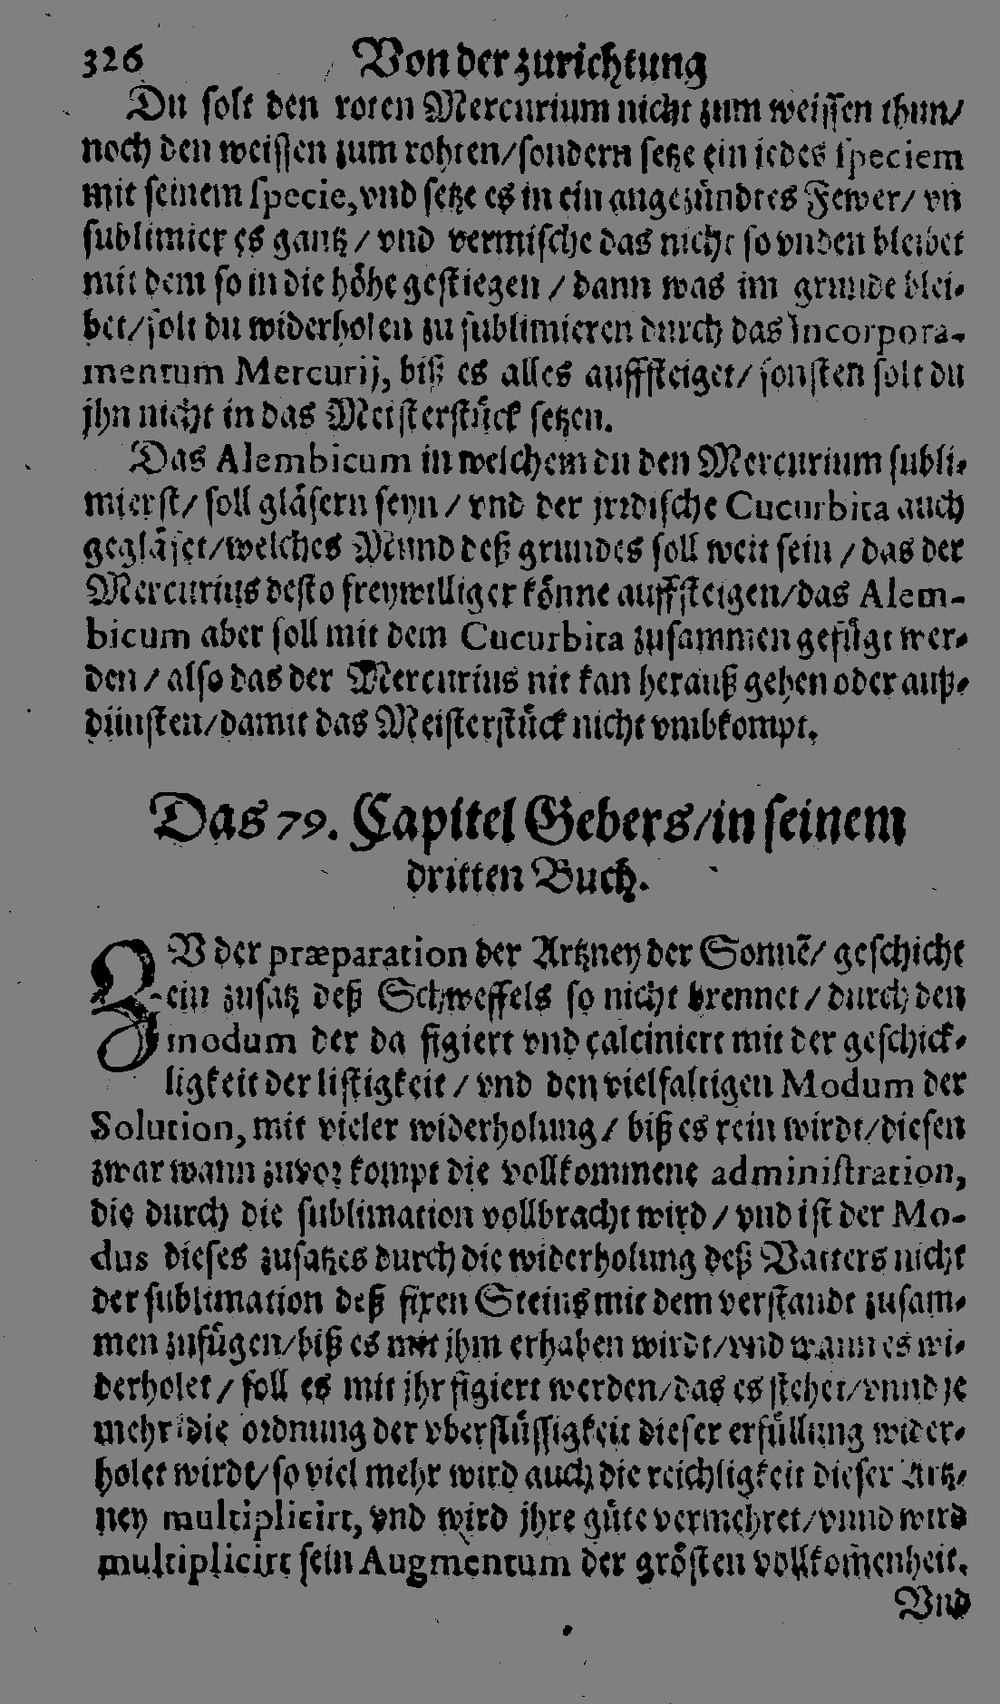 326 Von der zurichtung
Du solt den roten Mercurium nicht zum weissen thun/
noch den weissen zum rohten/sondern setze ein jedes speciem
mit seinem specie, vnd setze es in ein angezündtes Fewer/ vñ
sublimier es gantz / vnd vermische das nicht so vnden bleibet
mit dem so in die höhe gestiegen / dann was im grunde blei-
bet/solt du widerholen zu sublimieren durch das Incorpora-
mentum Mercurij, biß es alles auffsteiget/ sonsten solt du
jhn nicht in das Meisterstück setzen.
Das Alembicum in welchem du den Mercurium subli-
mierst/ soll gläsern seyn / vnd der jrrdische Cucurbita auch
gegläset/welches Mund deß grundes soll weit sein / das der
Mercurius desto freywilliger könne auffsteigen/das Alem-
bicum aber soll mit dem Cucurbita zusammen gefügt wer-
den / also das der Mercurius nit kan herauß gehen oder auß-
dünsten/damit das Meisterstück nicht vmbkompt.
Das 79. Capitel Gebers/in seinem
dritten Buch.
ZV der præparation der Artzney der Sonnẽ/ geschicht
ein zusatz deß Schweffels so nicht brennet / durch den
modum der da figiert vnd calciniert mit der geschick-
ligkeit der listigkeit / vnd den vielfaltigen Modum der
Solution, mit vieler widerholung / biß es rein wirdt/diesen
zwar wann zuvor kompt die vollkommene administration,
die durch die sublimation vollbracht wird / vnd ist der Mo-
dus dieses zusatzes durch die widerholung deß Vatters nicht
der sublimation deß fixen Steins mit dem verstandt zusam-
men zufügen/biß es mit jhm erhaben wirdt/vnd wann es wi-
derholet / soll es mit jhr figiert werden/das es stehet/vnnd je
mehr die ordnung der vberflüssigkeit dieser erfüllung wider-
holet wirdt/ so viel mehr wird auch die reichligkeit dieser Artz-
ney multiplicirt, vnd wird jhre güte vermehret/vnnd wird
multiplicirt sein Augmentum der grösten vollkom̃enheit.
Vnd